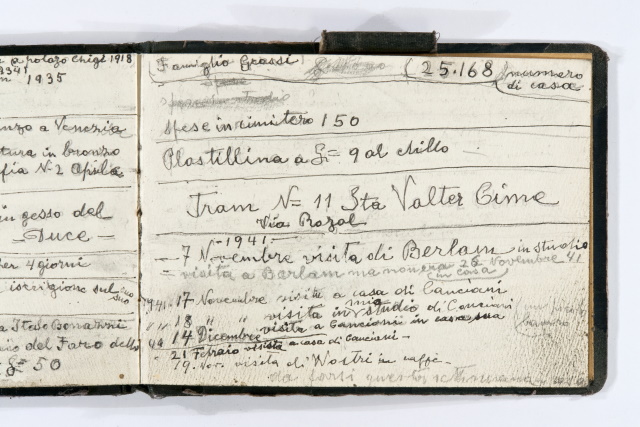 a palazo Chigi 1918
1935
a Venezia
tura in bronzo
fia N-2 Opsila
in gesso del
- Duce -
per 4 giorni
iscrizione sul
suo
a Italo Bonazzi
cio del Faro dello
50
(Famiglia Grassi
(25.168 (numero
di casa
spese in cimitero 150
Plastillina a £= 9 al chillo -
Tram N= 11 Sta Valter Cime
Via Rozol
- 1941 -
- 7 Novembre visita di Berlam in studio
= visita a Berlam ma non era 26 Novembre 41
(in casa)
1941-17 Novembre visita a casa di Canciani
" " 18 " " visita in mio studio di Canciani
14 Dicembre visita a Canciani in casa sua
- 21 Febraio visita a casa di Canciani -
19. Nov. visita di Nostri in caffè -
da farsi questa settimana